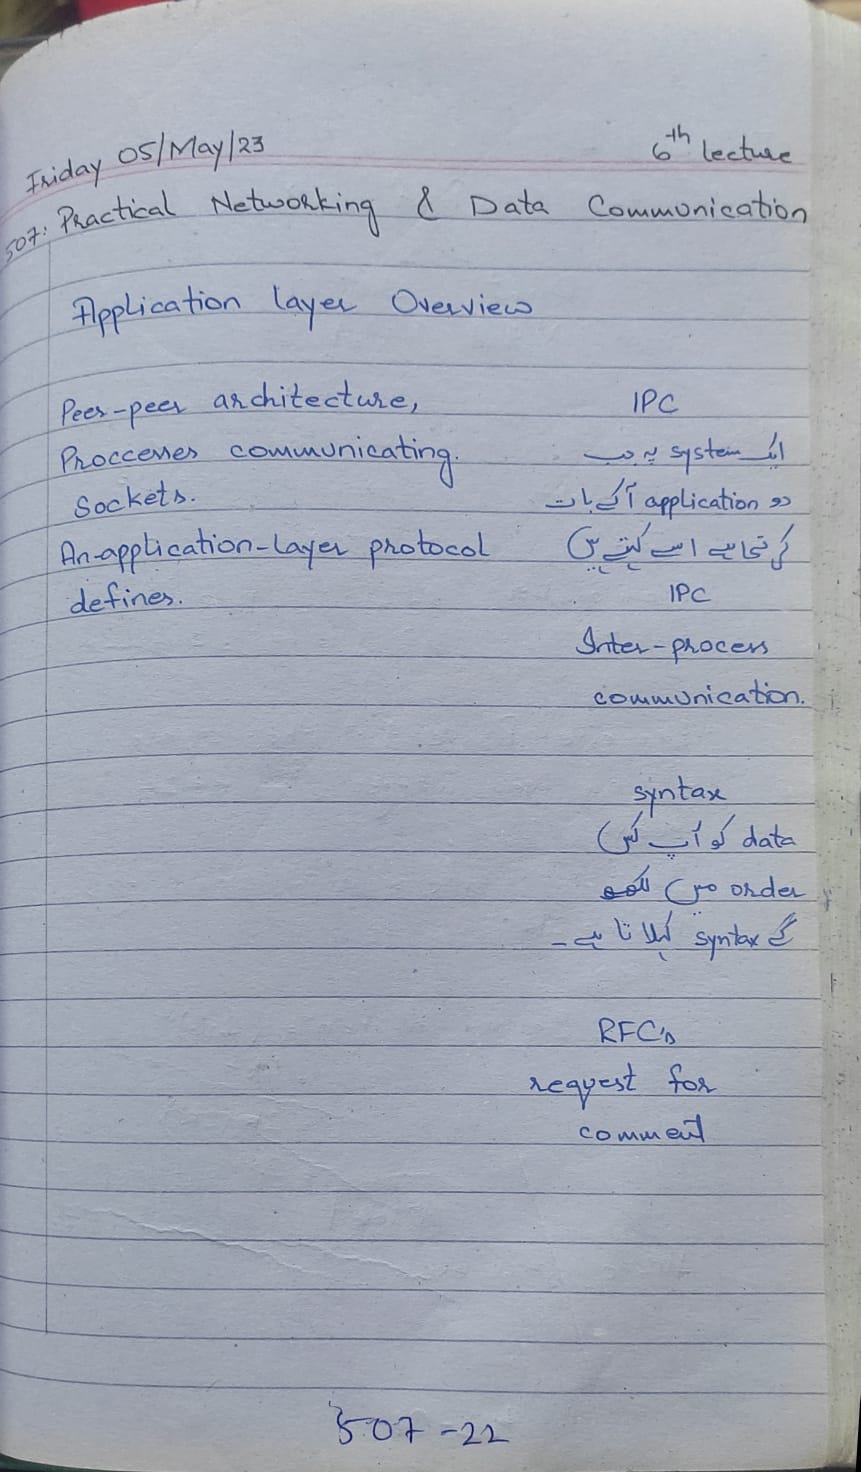 Friday 05/May/23
6th lecture
507: Practical Networking & Data Communication
Application layer Overview
Peer-peer architecture,
Proccesses communicating.
Sockets.
An-application-layer protocol
defines.
IPC
ایک system پہ جب
دو application آکے بات
کرتی ہے اسے کہتے ہیں
IPC
Inter-process
communication.
syntax
data کو آپ کس
order میں لکھو
گے syntax کہلاتا ہے۔
RFC's
request for
comment
507-22